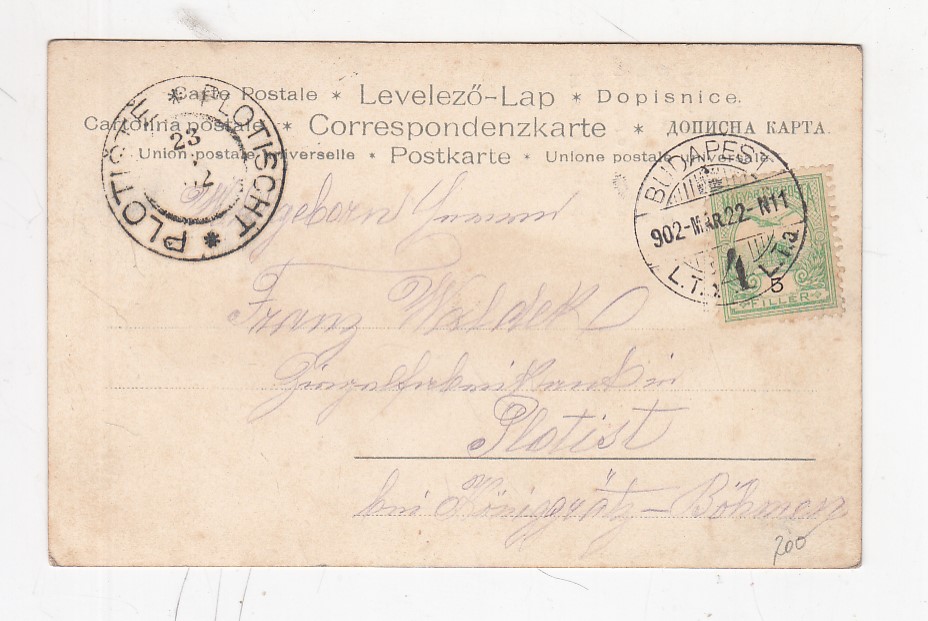 Carte Postale * Levelező-Lap * Dopisnice.
Cartolina postale * Correspondenzkarte * ДОПИСНА КАРТА.
Union postale universelle * Postkarte * Unione postale universale.
* PLOTISCHT * PLOTIŠTĚ
23
2
BUDAPEST
902-MÁR.22-N11
L.T.a L.T.a
1
MAGYAR KIR. POSTA
5
FILLÉR
Franz Waldek
in
Plotist
bei Königgrätz – Böhmen
200